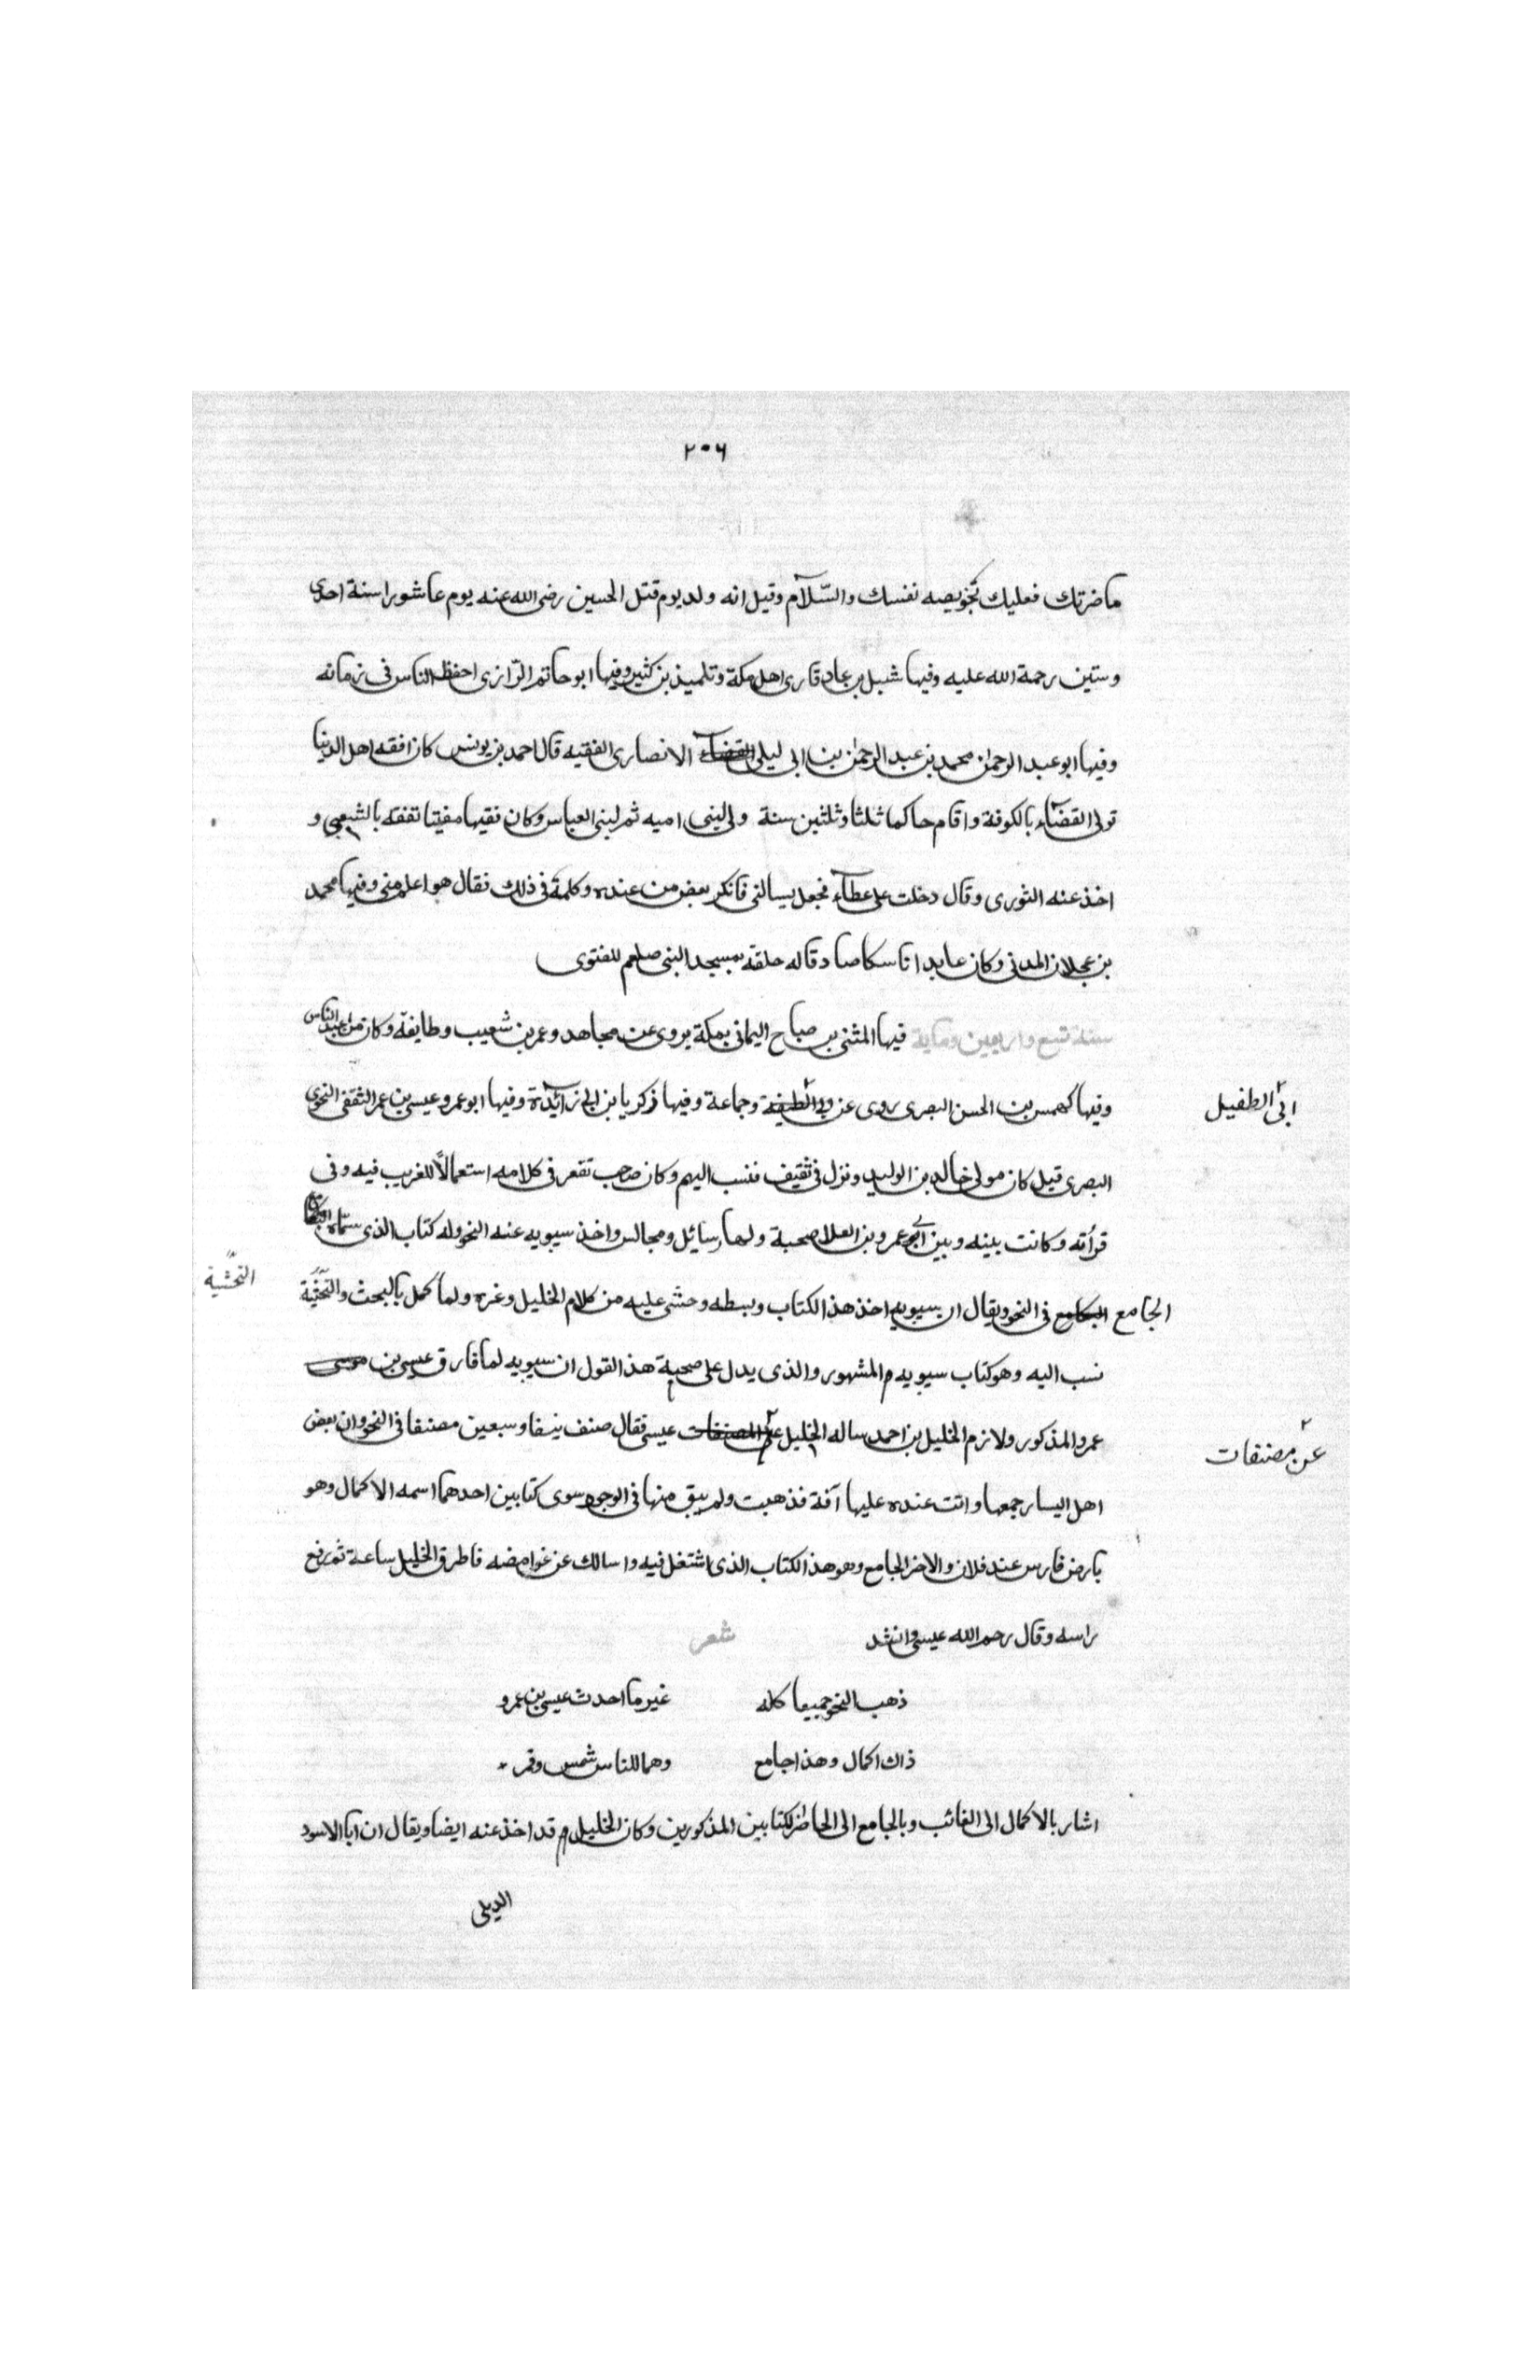 ٢٠٦
ما ضرتك فعليك بخويصه نفسك والسّلام وقيل انه ولد يوم قتل الحسين رضى الله عنه يوم عاشورا سنة احدى
وستين رحمة الله عليه وفيها شبل بن عباد قارى اهل مكة وتلميذ بن كثير وفيها ابو حاتم الرّازى احفظ الناس فى زمانه
وفيها ابو عبد الرحمن محمد بن عبد الرحمن بن ابى ليلى القضاء الانصارى الفقيه قال احمد بن يونس كان افقه اهل الدنيا
تولى القضاء بالكوفة واقام حاكما ثلثا وثلثين سنة ولى لبنى اميه ثم لبنى العباس وكان فقيها مفيتا تفقه بالشعبى و
اخذ عنه الثورى وقال دخلت على عطاء فجعل يسالنى فانكر بعض من عنده وكلمة فى ذلك فقال هو اعلم منى وفيها محمد
بن عجلان المدنى وكان عابدا ناسكا صادقا له حلقة بمسجد النبى صلعم للفتوى
سنة تسع واربعين وماية فيها المثنى بن صباح اليمانى بمكة يروى عن مجاهد وعمر بن شعيب وطايفة وكان من اعبد الناس
وفيها كهمس بن الحسن البصرى روى عن وجماعة وفيها زكريا بن ابى زائدة وفيها ابو عمرو عيسى بن عمر الثقفى النحوى
ابى الطفيل
البصرى قيل كان مولى خالد بن الوليد ونزل فى ثقيف فنسب اليهم وكان صاحب تقعر فى كلامه استعمالاً للغريب فيه وفى
قرأته وكانت بينه وبين ابى عمرو بن العلا صحبة ولهما رسائل ومجالس واخذ سيبويه عنه النحو وله كتاب الذى سمّاه
الجامع فى النحو ويقال ان سيبويه اخذ هذ الكتاب وبسطه وحشى عليه من كلام الخليل وغره ولما كمل بالبحث
التحشية
نسب اليه وهو كتاب سيبويه المشهور والذى يدل على صحة هذ القول ان سيبويه لما فارق عيسى بن موسى
عمرو المذكور ولازم الخليل بن احمد ساله الخليل عيسى فقال صنف نيفا وسبعين مصنفا فى النحو وان بعض
عن مصنفات
اهل اليسار جمعها واتت عنده عليها آفة فذهبت ولم يبق منها فى الوجود سوى كتابين احدهما اسمه الاكمال وهو
بارض فارس عند فلان والاخر الجامع وهو هذ الكتاب الذى اشتغل فيه واسالك عن غوامضه فاطرق الخليل ساعة ثم رفع
راسه وقال رحم الله عيسى وانشد شعر
ذهب النحو جميعا كله غير ما احدث عيسى بن عمرو
ذاك اكمال وهذا جامع وهما للناس شمس وقمر
اشار بالاكمال الى الغائب وبالجامع الى الحاضر لكتابين المذكورين وكان الخليل قد اخذ عنه ايضا ويقال ان ابا الاسود
الديلى